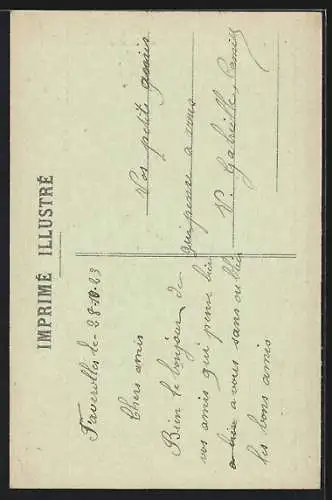 IMPRIMÉ ILLUSTRÉ
Faverolles le - 28-10-23
Chers amis
Bien le bonjour de
vos amis qui pense bien
a vous sans oublier
les bons amis
Vos petits amis
qui pense a vous
V. Gabrielle, Camille